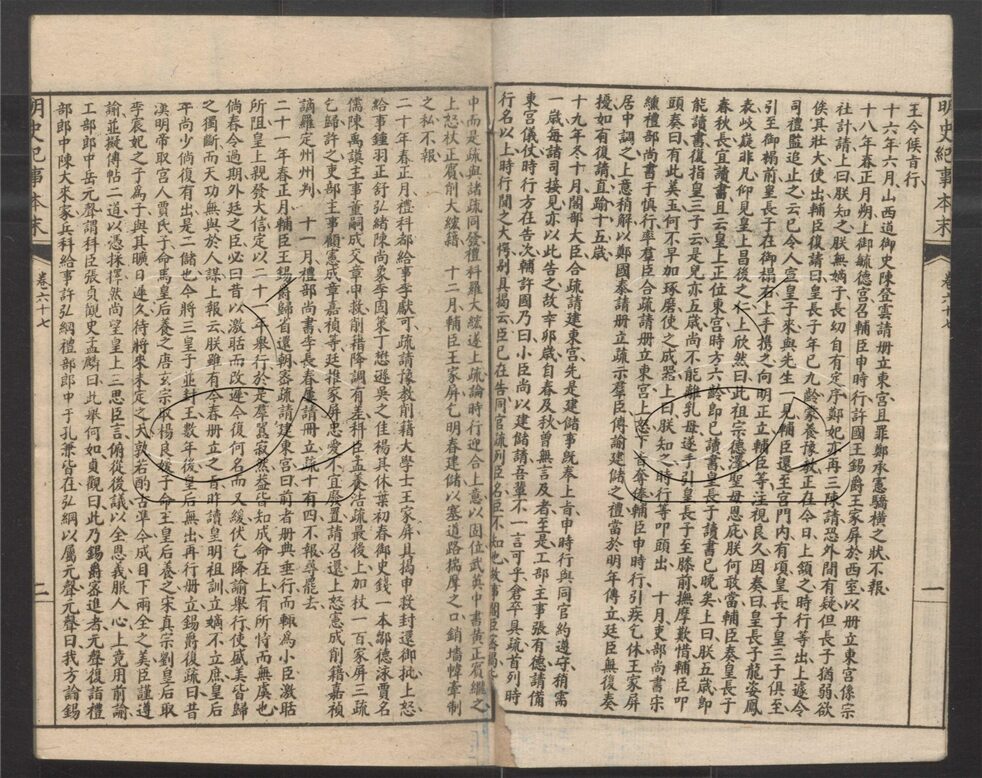 明史紀事本末
卷六十七
一
王令候旨行
十六年六月山西道御史陳登雲請册立東宮且罪鄭承憲驕横之狀不報
十八年春正月朔上御毓德宮召輔臣申時行許國王錫爵王家屏於西室以册立東宮係宗
社計請上曰朕知之朕無嫡子長幼自有定序鄭妃亦再三陳請恐外間有疑但長子猶弱欲
俟其壯大使出輔臣復請曰皇長子年已九齡蒙養豫教正在今日上頷之時行等出上遽令
司禮監追止之云已令人宣皇子來與先生一見輔臣還至宮門内有頃皇長子皇三子俱至
引至御榻前皇長子在御榻右上手携之向明正立輔臣等注視良久因奏曰皇長子龍姿鳳
表岐嶷非凡仰見皇上昌後之仁上欣然曰此祖宗德澤聖母恩庇朕何敢當輔臣奏皇長子
春秋長宜讀書且云皇上正位東宮時方六齡即已讀書皇長子讀書已晚矣上曰朕五歲即
能讀書復指皇三子云是兒亦五歲尚不能離乳母遂手引皇長子至膝前撫摩歎惜輔臣叩
頭奏曰有此美玉何不早加琢磨使之成器上曰朕知之時行等叩頭出 十月吏部尚書宋
纁禮部尚書于慎行率羣臣合疏請册立東宮上怒下旨奪俸輔臣申時行引疾乞休王家屏
居中調之上意稍解以鄭國泰請册立疏示羣臣傳諭建儲之禮當於明年傳立廷臣無復奏
擾如有復請直踰十五歲
十九年冬十月閣部大臣合疏請建東宮先是建儲事既奉上旨申時行與同官約遵守稍需
一歲每諸司接見亦以此告之故辛卯歲自春及秋曾無言及者至是工部主事張有德請備
東宮儀仗時行方在告次輔許國乃曰小臣尚以建儲請吾輩不一言可乎倉卒具疏首列時
行名以上時行聞之大愕别具揭云臣已在告同官疏列臣名臣不知也故事閣臣密揭
中而是疏與諸疏同發禮科羅大紘遂上疏論時行迎合上意以固位武英中書黄正賓繼之
上怒杖正賓削大紘籍 十二月輔臣王家屏乞明春建儲以塞道路揣摩之口銷墻幃牽制
之私不報
二十年春正月禮科都給事李獻可疏請豫教削籍大學士王家屏具揭申救封還御批上怒
給事鍾羽正舒弘緒陳尚象李固策丁懋遜吳之佳楊其休葉初春御史錢一本鄒德泳賈名
儒陳禹謨主事董嗣成交章申救削籍降調有差科臣孟養浩疏最後上加杖一百家屏三疏
乞歸許之吏部主事顧憲成章嘉禎等廷推家屏忠愛不宜廢置請召還上怒憲成削籍嘉禎
謫羅定州州判 十一月禮部尚書李長春屢請冊立疏十有四不報尋罷去
二十一年春正月輔臣王錫爵歸省還朝密疏請建東宮曰前者册典垂行而輒為小臣激聒
所阻皇上親發大信定以二十一年舉行於是羣囂寂然益皆知成命在上有所恃而無虞也
倘春令過期外廷之臣必曰昔以激聒而改遲今復何名而又緩伏乞降諭舉行使盛美皆歸
之獨斷而天功無與於人謀上報云朕雖有今春册立之旨昨讀皇明祖訓立嫡不立庶皇后
年尚少倘復有出是二儲也今將三皇子並封王數年後皇后無出再行册立錫爵復疏曰昔
漢明帝取宮人賈氏子命馬皇后養之唐玄宗取楊良媛子命王皇后養之宋真宗劉皇后取
李宸妃之子為子與其曠日遲久待將來未定之天孰若酌古準今成目下兩全之美臣謹遵
諭並擬傳帖二道以憑採擇然尚望皇上三思臣言俯從後議以全恩義服人心上竟用前諭
工部郎中岳元聲謂科臣張貞觀史孟麟曰此舉何如貞觀曰此乃錫爵密進者元聲復詣禮
部郎中陳大來家兵科給事許弘綱禮部郎中于孔兼皆在弘綱以屬元聲元聲曰我方論錫
明史紀事本末
卷六十七
二